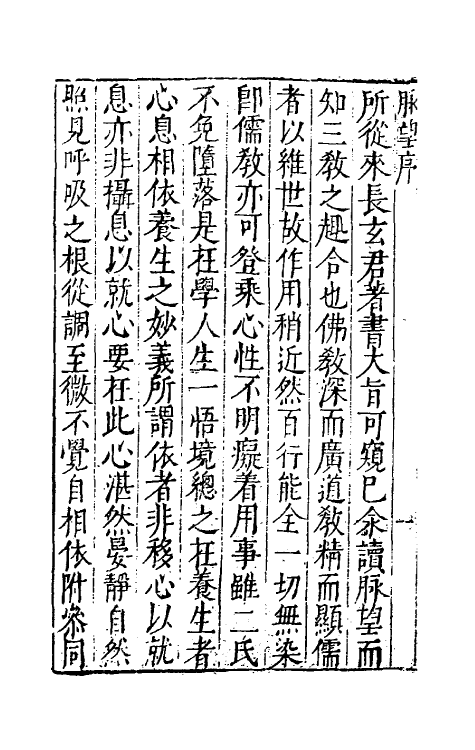 脉望序
所從來長玄君著書大旨可窺巳余讀脉望而
知三教之趣合也佛教深而廣道教精而顯儒
者以維世故作用稍近然百行能全一切無染
即儒教亦可登乘心性不明癡着用事雖二氏
不免墮落是在學人生一悟境總之在養生者
心息相依養生之妙義所謂依者非移心以就
息亦非攝息以就心要在此心湛然晏靜自然
照見呼吸之根從調至微不覺自相依附叅同
一